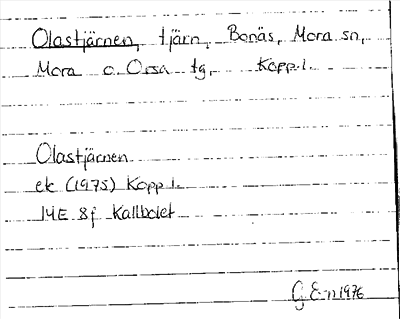 Olastjärnen, tjärn, Bonäs, Mora sn,
Mora o. Orsa tg, Kopp. l.
Olastjärnen
ek (1975) Kopp l.
14E 8f Kallbolet
G E-n 1976